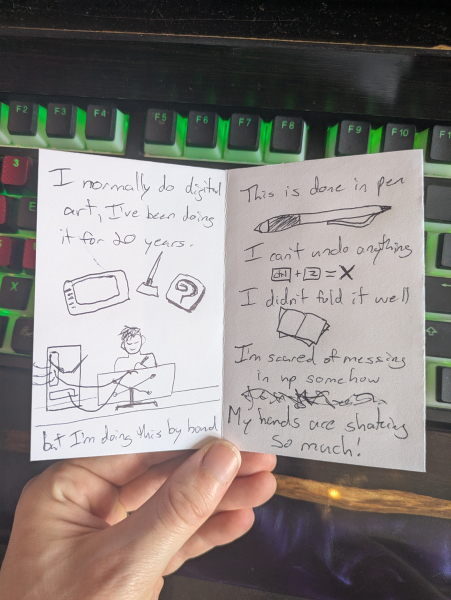 F2
F3
F4
F5
F6
F7
F8
F9
F10
3
E
X
I normally do digital
art, I've been doing
it for 20 years.
but I'm doing this by hand
This is done in pen
I can't undo anything
ctrl + Z = X
I didn't fold it well
I'm scared of messing
in up somehow
My hands are shaking
So much!